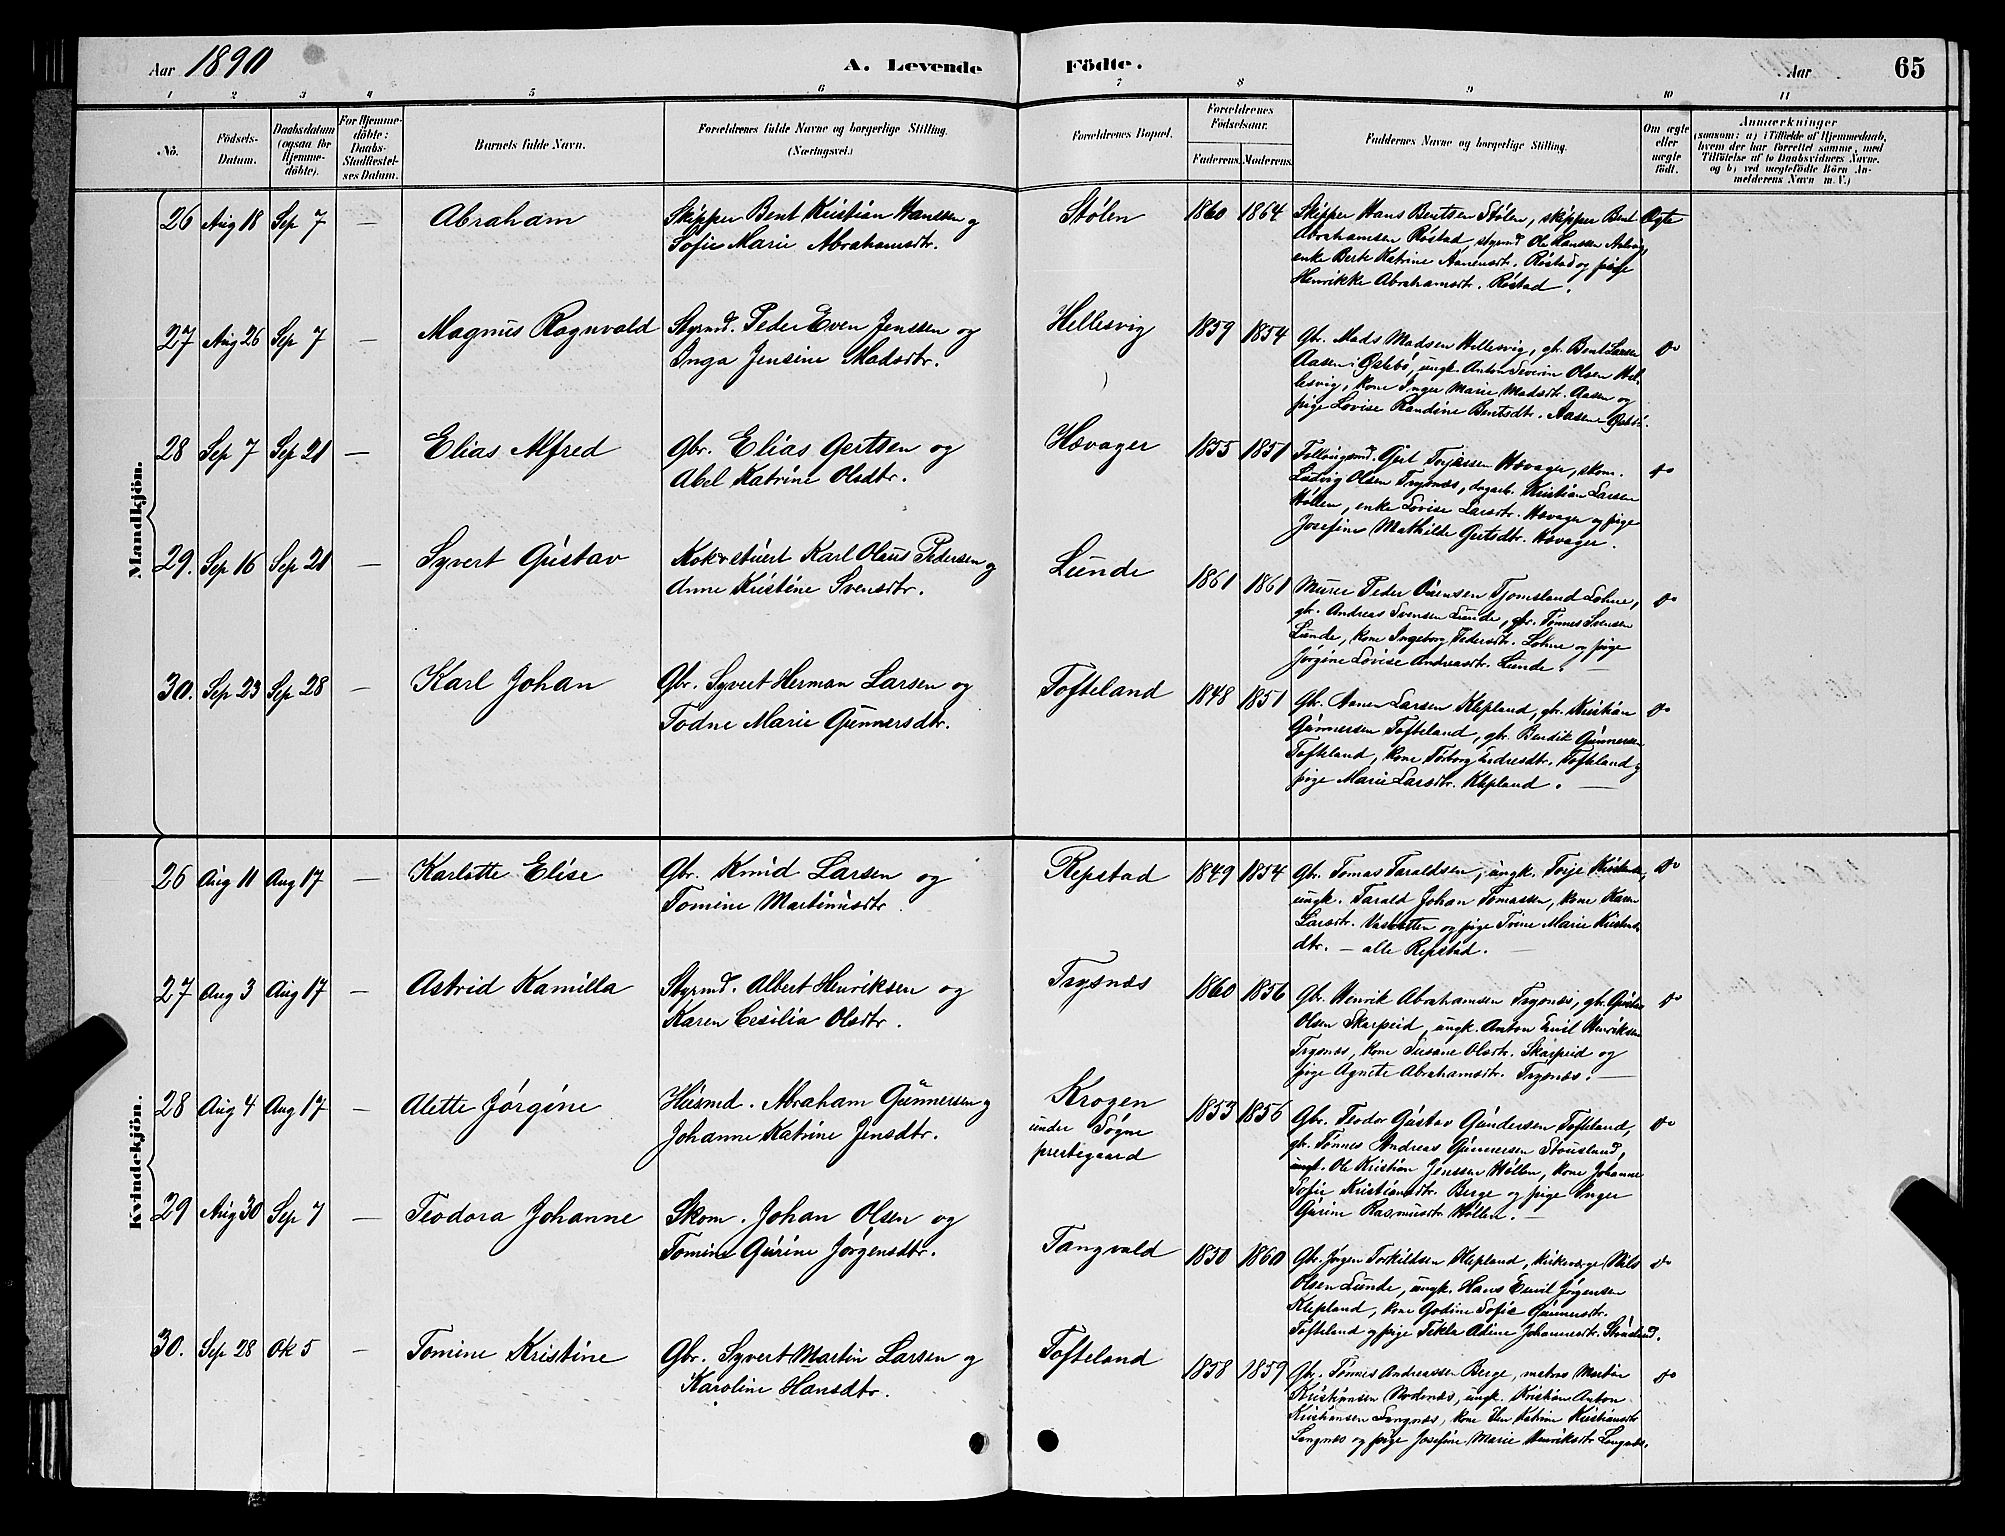 Aar 1890
A. Levende Födte.
Aar
65
1 2 3 4 5 6 7 8 9 10 11
No.
Födsels-Datum.
Daabsdatum (ogsaa for Hjemmedöbte).
For Hjemmedöbte: Daabs-Stadfæstelses Datum.
Barnets fulde Navn.
Forældrenes fulde Navne og borgerlige Stilling. (Næringsvei.)
Forældrenes Bopæl.
Forældrenes Födselsaar.
Faderens. Moderens.
Faddernes Navne og borgerlige Stilling.
Om ægte eller uægte födt.
Anmærkninger
(saasom: a) i Tilfælde af Hjemmedaab,
hvem der har forrettet samme, med
Tilföielse af to Daabsvidners Navne.
og b) ved uægtefödte Börn An-
melderens Navn m. V.)
Mandkjön.
26 Aug 18 Sep 7 — Abraham
Skipper Bent Kristian Hanssen og
Sofie Marie Abrahamsdtr.
Stølen 1860 1864
Skipper Hans Bentsen Stølen, skipper Bent
Abrahamsen Røstad, styrmd Ole Hanssen
enke Berte Katrine Aanensdtr. Røstad og pige
Henrikke Abrahamsdtr. Røstad.
Ægte
27 Aug 26 Sep 7 — Magnus Ragnvald
Styrmd. Peder Even Jenssen og
Inga Jensine Madsdtr.
Hellesvig 1859 1854
Gbr. Mads Madsen Hellesvig, gbr. Bent Larsen
Aasen i Øslebø, ungk. Anton Severin Olsen Hel-
lesvig, kone Inger Marie Madsdtr. Aasen og
pige Lovise Randine Bentsdtr. Aasen Øslebø.
do
28 Sep 7 Sep 21 — Elias Alfred
Gbr. Elias Gertsen og
Abel Katrine Olsdtr.
Hævager 1855 1851
Follaugsmd. Gert Torjessen Hævager, skom.
Ludvig Olsen Trysnæs, dagarb. Kristian Larsen
Høllen, enke Lovise Larsdtr. Hævager og pige
Josefine Mathilde Gertsdtr. Hævager.
do
29. Sep 16 Sep 21 — Syvert Gustav
Kok & stuert Karl Olaus Pedersen og
Anne Kristine Svensdtr.
Lunde 1861 1861
Murer Peder Osensen Tjomsland Lohne,
gbr. Andreas Svensen Lunde, gbr. Tønnes Svensen
Lunde, kone Ingeborg Pedersdtr. Lohne og pige
Jørgine Lovise Andreasdtr. Lunde. —
do
30. Sep 23 Sep 28 — Karl Johan
Gbr. Syvert Herman Larsen og
Todne Marie Gunnersdtr.
Tofteland 1848 1851
Gbr. Aanen Larsen Klepland, gbr. Kristian
Gunnersen Tofteland, gbr. Bendik Gunnersen
Tofteland, kone Torborg Endresdtr. Tofteland og
pige Marie Larsdtr. Klepland. —
do
Kvindekjön.
26 Aug 11 Aug 17 — Karlotte Elise
Gbr. Knud Larsen og
Tomine Martinusdtr.
Repstad 1849 1854
Gbr. Tomas Taraldsen, ungk. Torje
ungk. Tarald Johan Tomassen, kone Karen
Larsdtr. Vasbotten og pige Tomine Marie
dtr. — alle Repstad. —
do
27 Aug 3 Aug 17 — Astrid Kamilla
Styrmd. Albert Henriksen og
Karen Cesilia Olsdtr.
Trysnæs 1860 1856
Gbr. Henrik Abrahamsen Trysnæs, gbr. Gustav
Olsen Skarpeid, ungk. Anton Emil Henriksen
Trysnæs, kone Susane Olsdtr. Skarpeid og
pige Agnete Abrahamsdtr. Trysnæs. —
do
28 Aug 4 Aug 17 — Alette Jørgine
Husmd. Abraham Gunnersen og
Johanne Katrine Jensdtr.
Krogen
under Søgne
prestegaard
1853 1856
Gbr. Teodor Gustav Gundersen Tofteland,
gbr. Tønnes Andreas Gunnersen Stousland,
ungk. Ole Kristian Jenssen Høllen, kone Johanne
Sofie Kristiansdtr. Berge og pige Inger
Gurine Rasmusdtr Høllen. —
do
29 Aug 30 Sep 7 — Teodora Johanne
Skom. Johan Olsen og
Tomine Gurine Jørgensdtr.
Tangvald 1850 1860
Gbr. Jørgen Torkildsen Klepland, kirkeværge Nils
Olsen Lunde, ungk. Hans Emil Jørgensen
Klepland, kone Godine Sofie Gunnersdtr.
Tofteland og pige Tekla Adine Johannesdtr. Stousland.
do
30. Sep 28 Ok 5 — Tomine Kristine
Gbr. Syvert Martin Larsen og
Karoline Hansdtr.
Tofteland 1858 1859
Gbr. Tønnes Andreassen Berge, matros Martin
Kristiansen Nodenæs, ungk. Kristian Anton
Kristiansen Langnæs, kone Elen Katrine Kristiansdtr
Langnæs og pige Josefine Marie Henriksdtr Langnæs.
do